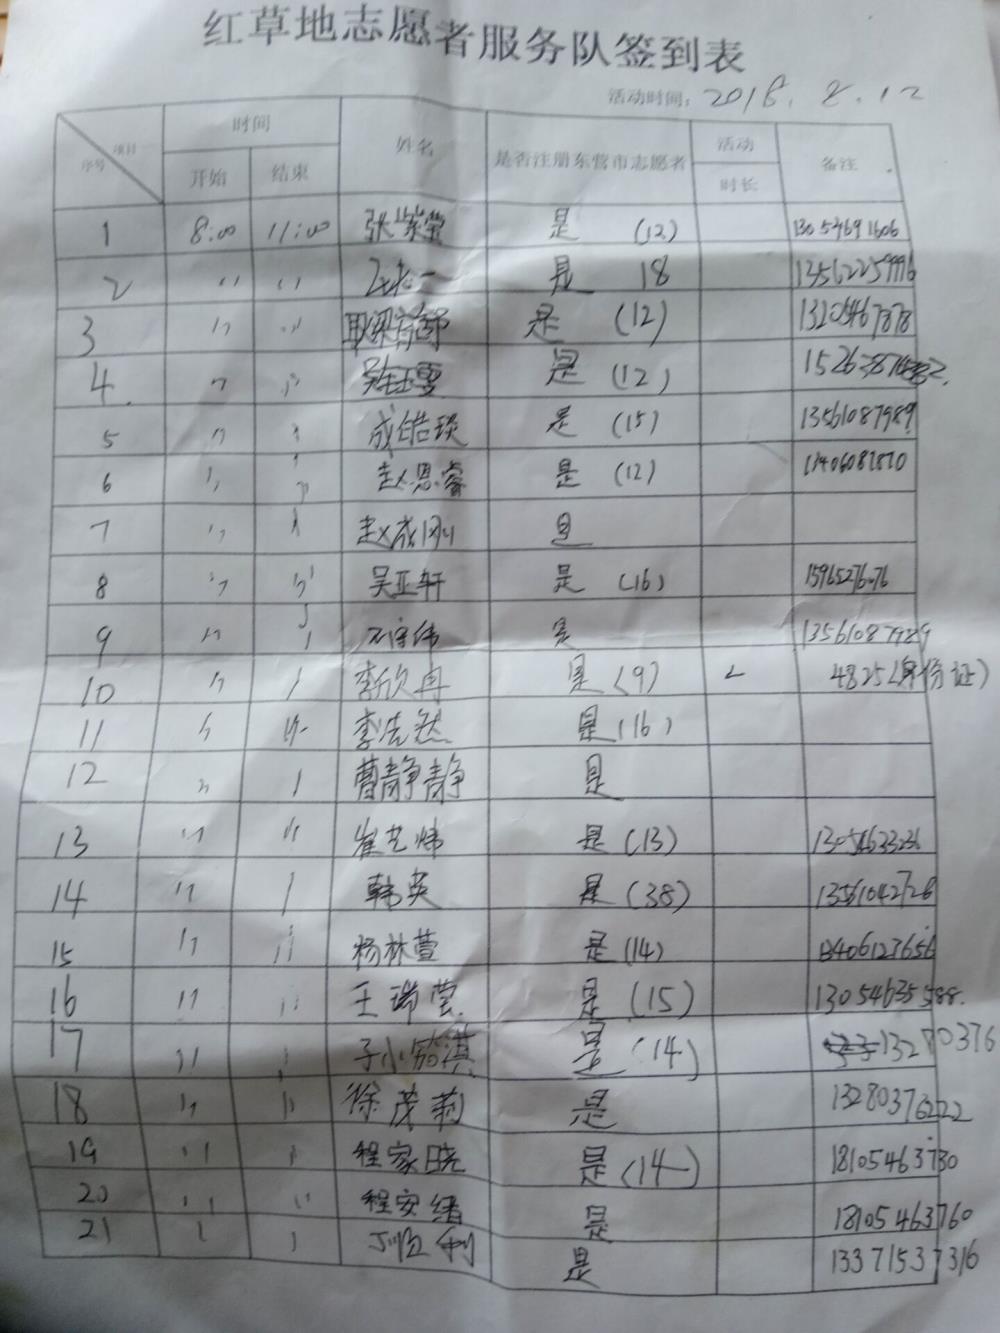 红草地志愿者服务队签到表
活动时间: 2018. 8. 12
序号 项目 时间 姓名 是否注册东营市志愿者 活动时长 备注
开始 结束
1 8:00 11:00 张紫莹 是 (12) 13054691606
2 〃 〃 是 18 13562259996
3 〃 〃 是 (12) 13205467878
4 〃 〃 是 (12)
5 〃 〃 成皓琰 是 (15) 13561087989
6 〃 〃 赵恩睿 是 (12)
7 〃 〃 赵成刚 是
8 〃 〃 吴亚轩 是 (16)
9 〃 〃 是 13561087989
10 〃 〃 李欣冉 是 (9) 4825(身份证)
11 〃 〃 李浩然 是 (16)
12 〃 〃 曹静静 是
13 〃 〃 崔艺炜 是 (13) 13054633236
14 〃 〃 韩英 是 (38) 13561042728
15 〃 〃 杨林萱 是 (14)
16 〃 〃 王瑞莹 是 (15) 13054635588
17 〃 〃 是 (14) 13280376
18 〃 〃 徐茂莉 是 13280376222
19 〃 〃 程家晓 是 (14) 18105463730
20 〃 〃 程安绪 是 18105463760
21 〃 〃 丁顺利 是 13371537316